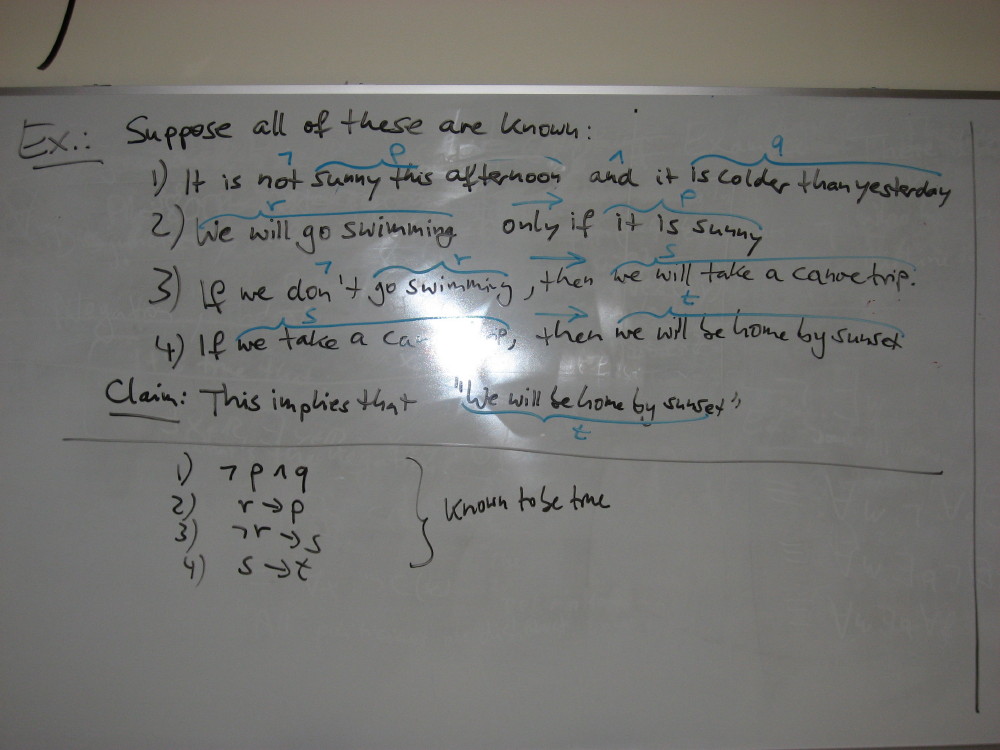 Ex.: Suppose all of these are known:
¬ p ∧ q
1) It is not sunny this afternoon and it is colder than yesterday
r → p
2) We will go swimming only if it is sunny
¬ r → s
3) If we don't go swimming, then we will take a canoe trip.
s → t
4) If we take a ca p, then we will be home by sunset
Claim: This implies that "We will be home by sunset"
t
1) ¬p∧q
2) r→p
3) ¬r→s
4) s→t
Known to be true